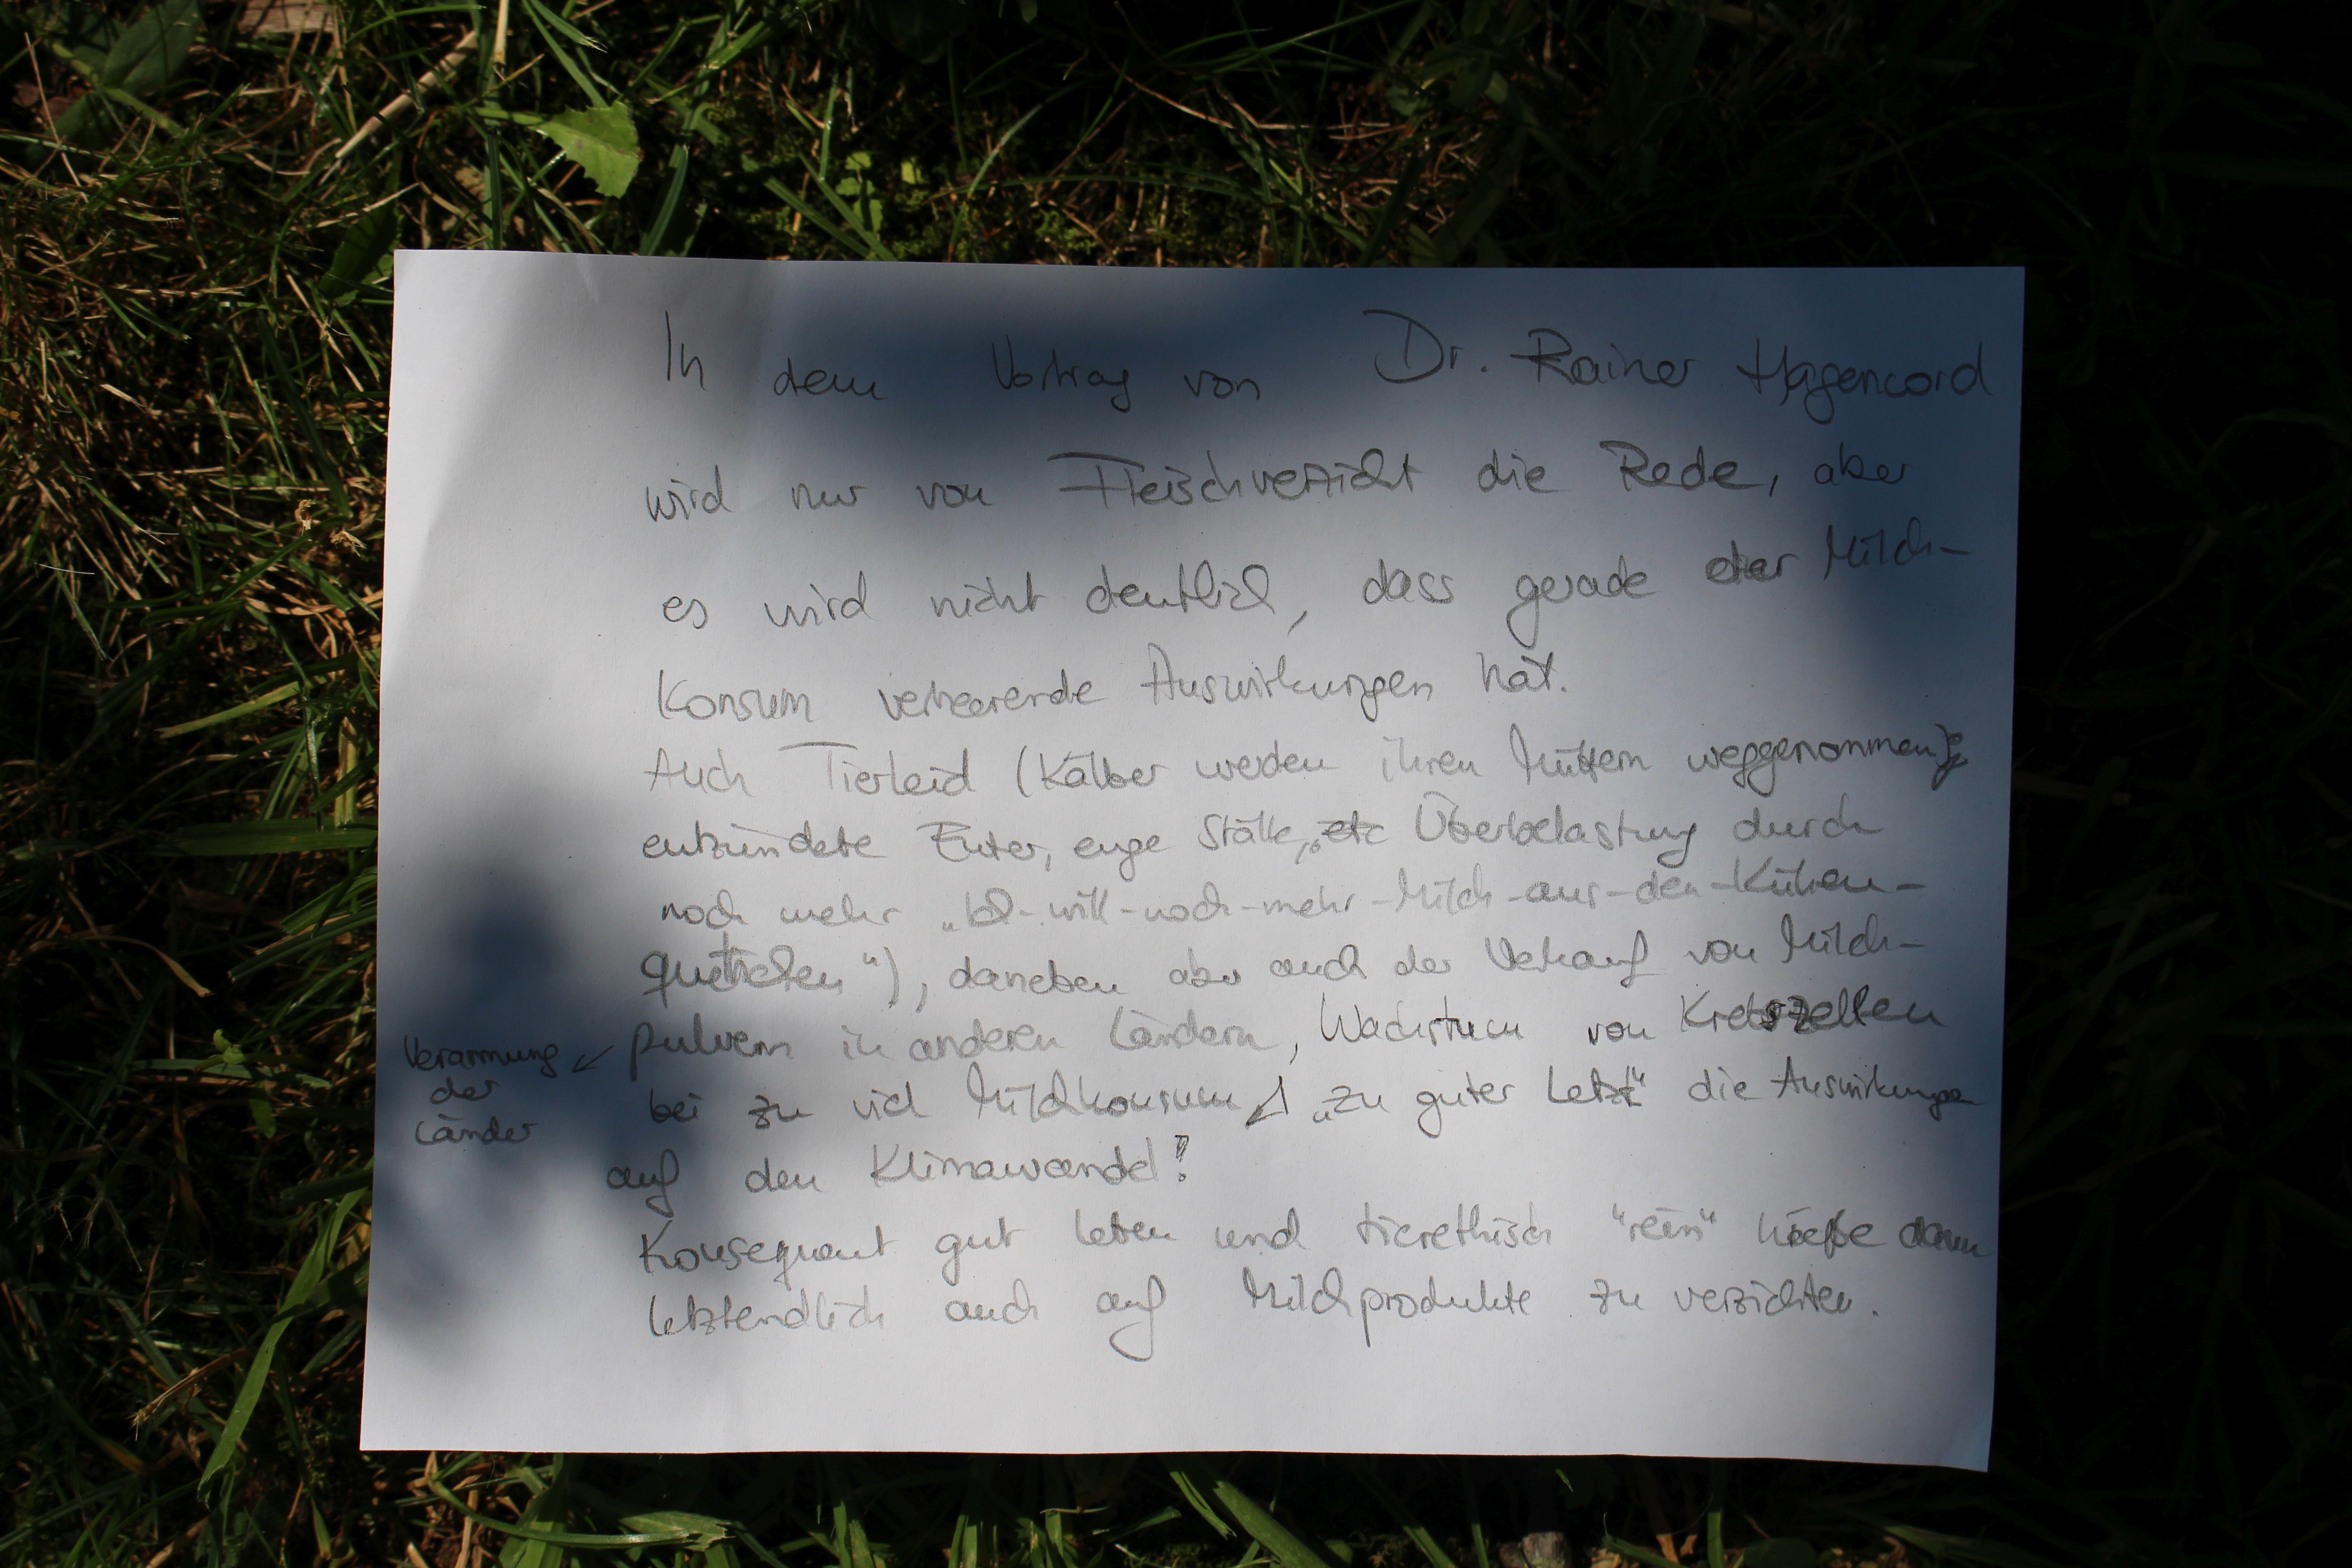 In dem Vortrag von Dr. Rainer Hagencord
wird nur von Fleischverzicht die Rede, aber
es wird nicht deutlich, dass gerade der Milch-
Konsum verheerende Auswirkungen hat.
Auch Tierleid (Kälber werden ihren Müttern weggenommen,
entzündete Euter, enge Ställe, etc Überbelastung durch
noch mehr „Ich-will-noch-mehr-Milch-aus-den-Kühen-
quetschen“), daneben aber auch der Verkauf von Milch-
pulvern in anderen Ländern, Wachstum von Krebszellen
Verarmung
der
Länder
bei zu viel Milchkonsum „zu guter Letzt“ die Auswirkungen
auf den Klimawandel!
Konsequent gut leben und tierethisch "rein" hieße dann
letztendlich auch auf Milchprodukte zu verzichten.